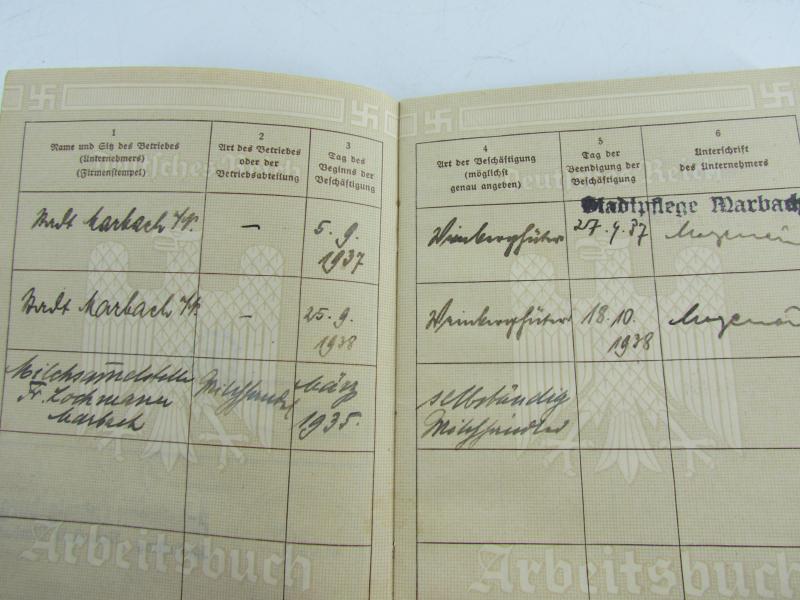 1
Name und Sitz des Betriebes
(Unternehmers)
(Firmenstempel)
2
Art des Betriebes
oder der
Betriebsabteilung
3
Tag des
Beginns der
Beschäftigung
Stadt Marbach a/N.
—
5. 9.
1937
Stadt Marbach a/N.
—
25. 9.
1938
Milchsammelstelle
Fr. Lochmann
Marbach
Milchhandel
März
1935.
Arbeitsbuch
4
Art der Beschäftigung
(möglichst
genau angeben)
5
Tag der
Beendigung der
Beschäftigung
6
Unterschrift
des Unternehmers
Deutsches Reich
Stadtpflege Marbach
Weinberghüter
27. 9. 37
Weinberghüter
18. 10.
1938
selbständig
Milchhändler
Arbeitsbuch